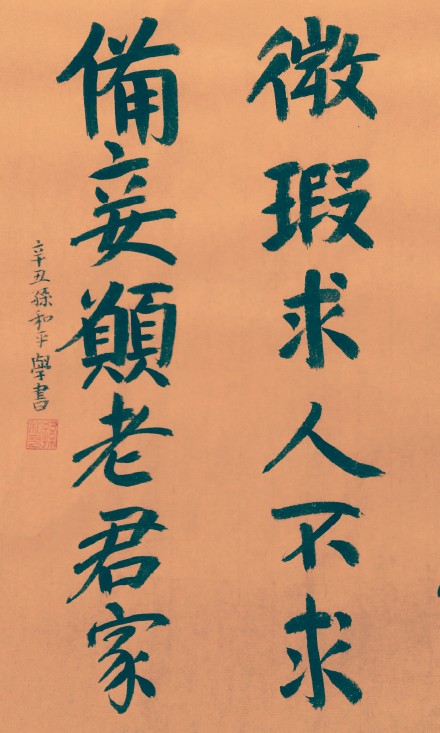 微瑕求人不求
備妾願老君家
辛丑孫和平學書